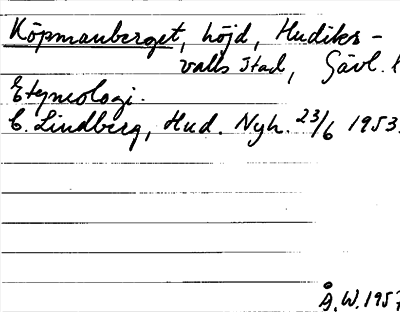 Köpmanberget, höjd, Hudiks-
valls stad, Gävl. l
Etymologi.
C. Lindberg, Hud. Nyh. 23/6 1953.
Å.W. 1957